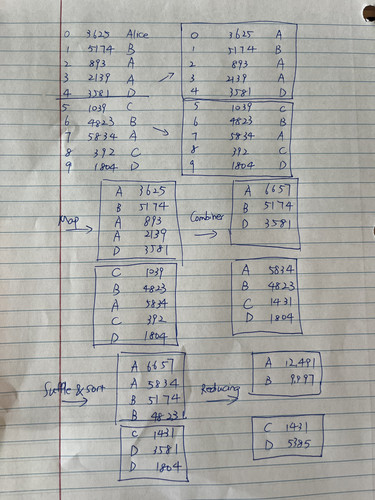 0 3625 Alice
1 5174 B
2 893 A
3 2139 A
4 3581 D
5 1039 C
6 4823 B
7 5834 A
8 392 C
9 1804 D
0 3625 A
1 5174 B
2 893 A
3 2139 A
4 3581 D
5 1039 C
6 4823 B
7 5834 A
8 392 C
9 1804 D
Map
A 3625
B 5174
A 893
A 2139
D 3581
C 1039
B 4823
A 5834
C 392
D 1804
Combiner
A 6657
B 5174
D 3581
A 5834
B 4823
C 1431
D 1804
Suffle & Sort
A 6657
A 5834
B 5174
B 4823
C 1431
D 3581
D 1804
Reducing
A 12,491
B 9,997
C 1431
D 5385